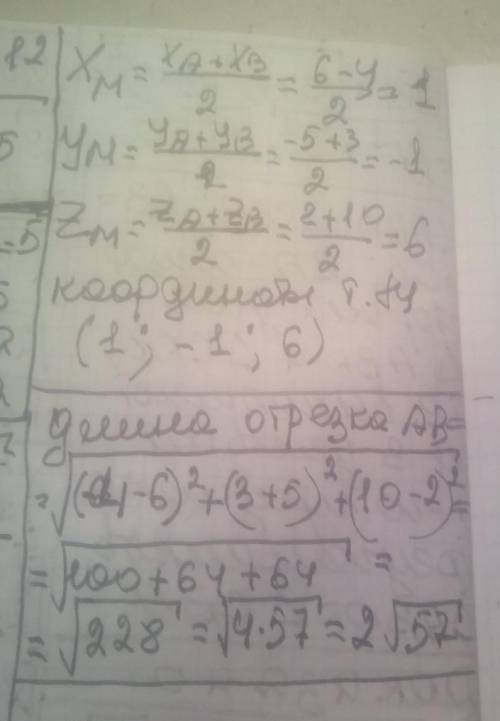 12
X_M = (X_A + X_B)/2 = (6 - 4)/2 = 1
5
Y_M = (Y_A + Y_B)/2 = (-5 + 3)/2 = -1
=5
Z_M = (Z_A + Z_B)/2 = (2 + 10)/2 = 6
координаты т. М
(1; -1; 6)
длина отрезка AB =
= √((-4 - 6)² + (3 + 5)² + (10 - 2)²) =
= √(100 + 64 + 64) =
= √228 = √(4·57) = 2√57